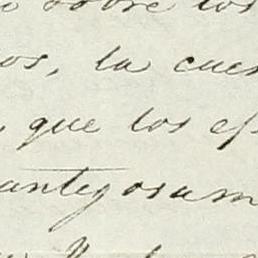 sobre los
os, la cues
que los ef
antegosam